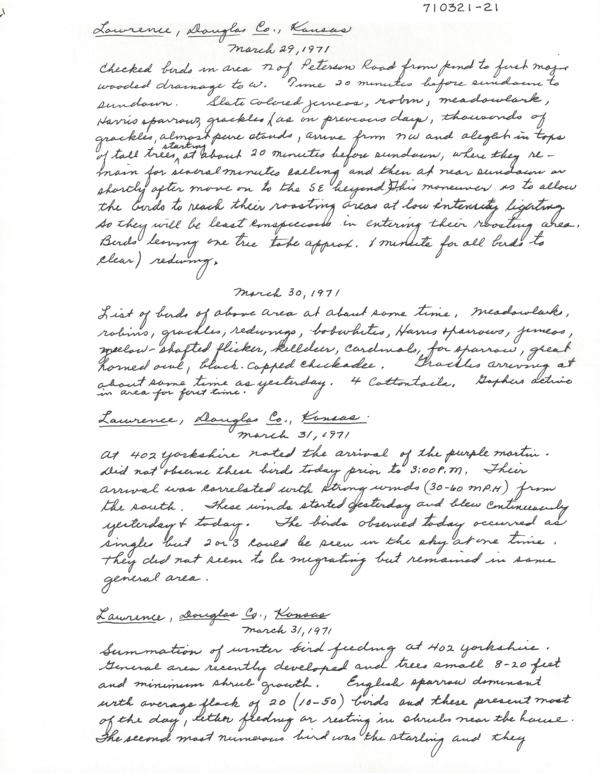 710321-21
Lawrence, Douglas Co., Kansas
March 29, 1971
Checked birds in area N of Peterson Road from pond to first major
wooded drainage to W. Time 20 minutes before sundown to
sundown. Slate colored juncos, robin, meadowlark,
Harris sparrow, grackles (as on previous days, thousands of
grackles, almost pure stands, arrive from NW and alight in tops
of tall trees, starting at about 20 minutes before sundown, where they re-
main for several minutes calling and then at near sundown or
shortly after move on to the SE beyond. This maneuver is to allow
the birds to reach their roosting areas at low intensity lighting
so they will be least conspicuous in entering their roosting area.
Birds leaving one tree take approx. 1 minute for all birds to
clear) redwing.
March 30, 1971
List of birds of above area at about same time, meadowlarks,
robins, grackles, redwings, bobwhites, Harris sparrows, juncos,
yellow-shafted flicker, killdeer, cardinals, fox sparrow, great
horned owl, black-capped chickadee. Grackles arriving at
about same time as yesterday. 4 Cottontails. Gophers active
in area for first time.
Lawrence, Douglas Co., Kansas.
March 31, 1971
At 402 Yorkshire noted the arrival of the purple martin.
Did not observe these birds today prior to 3:00 P.M. Their
arrival was correlated with strong winds (30-60 MPH) from
the south. These winds started yesterday and blew continuously
yesterday & today. The birds observed today occurred as
singles but 2 or 3 could be seen in the sky at one time.
They did not seem to be migrating but remained in same
general area.
Lawrence, Douglas Co., Kansas
March 31, 1971
Summation of winter bird feeding at 402 Yorkshire.
General area recently developed and trees small 8-20 feet
and minimum shrub growth. English sparrow dominant
with average flock of 20 (10-50) birds and these present most
of the day, either feeding or resting in shrubs near the house.
The second most numerous bird was the starling and they